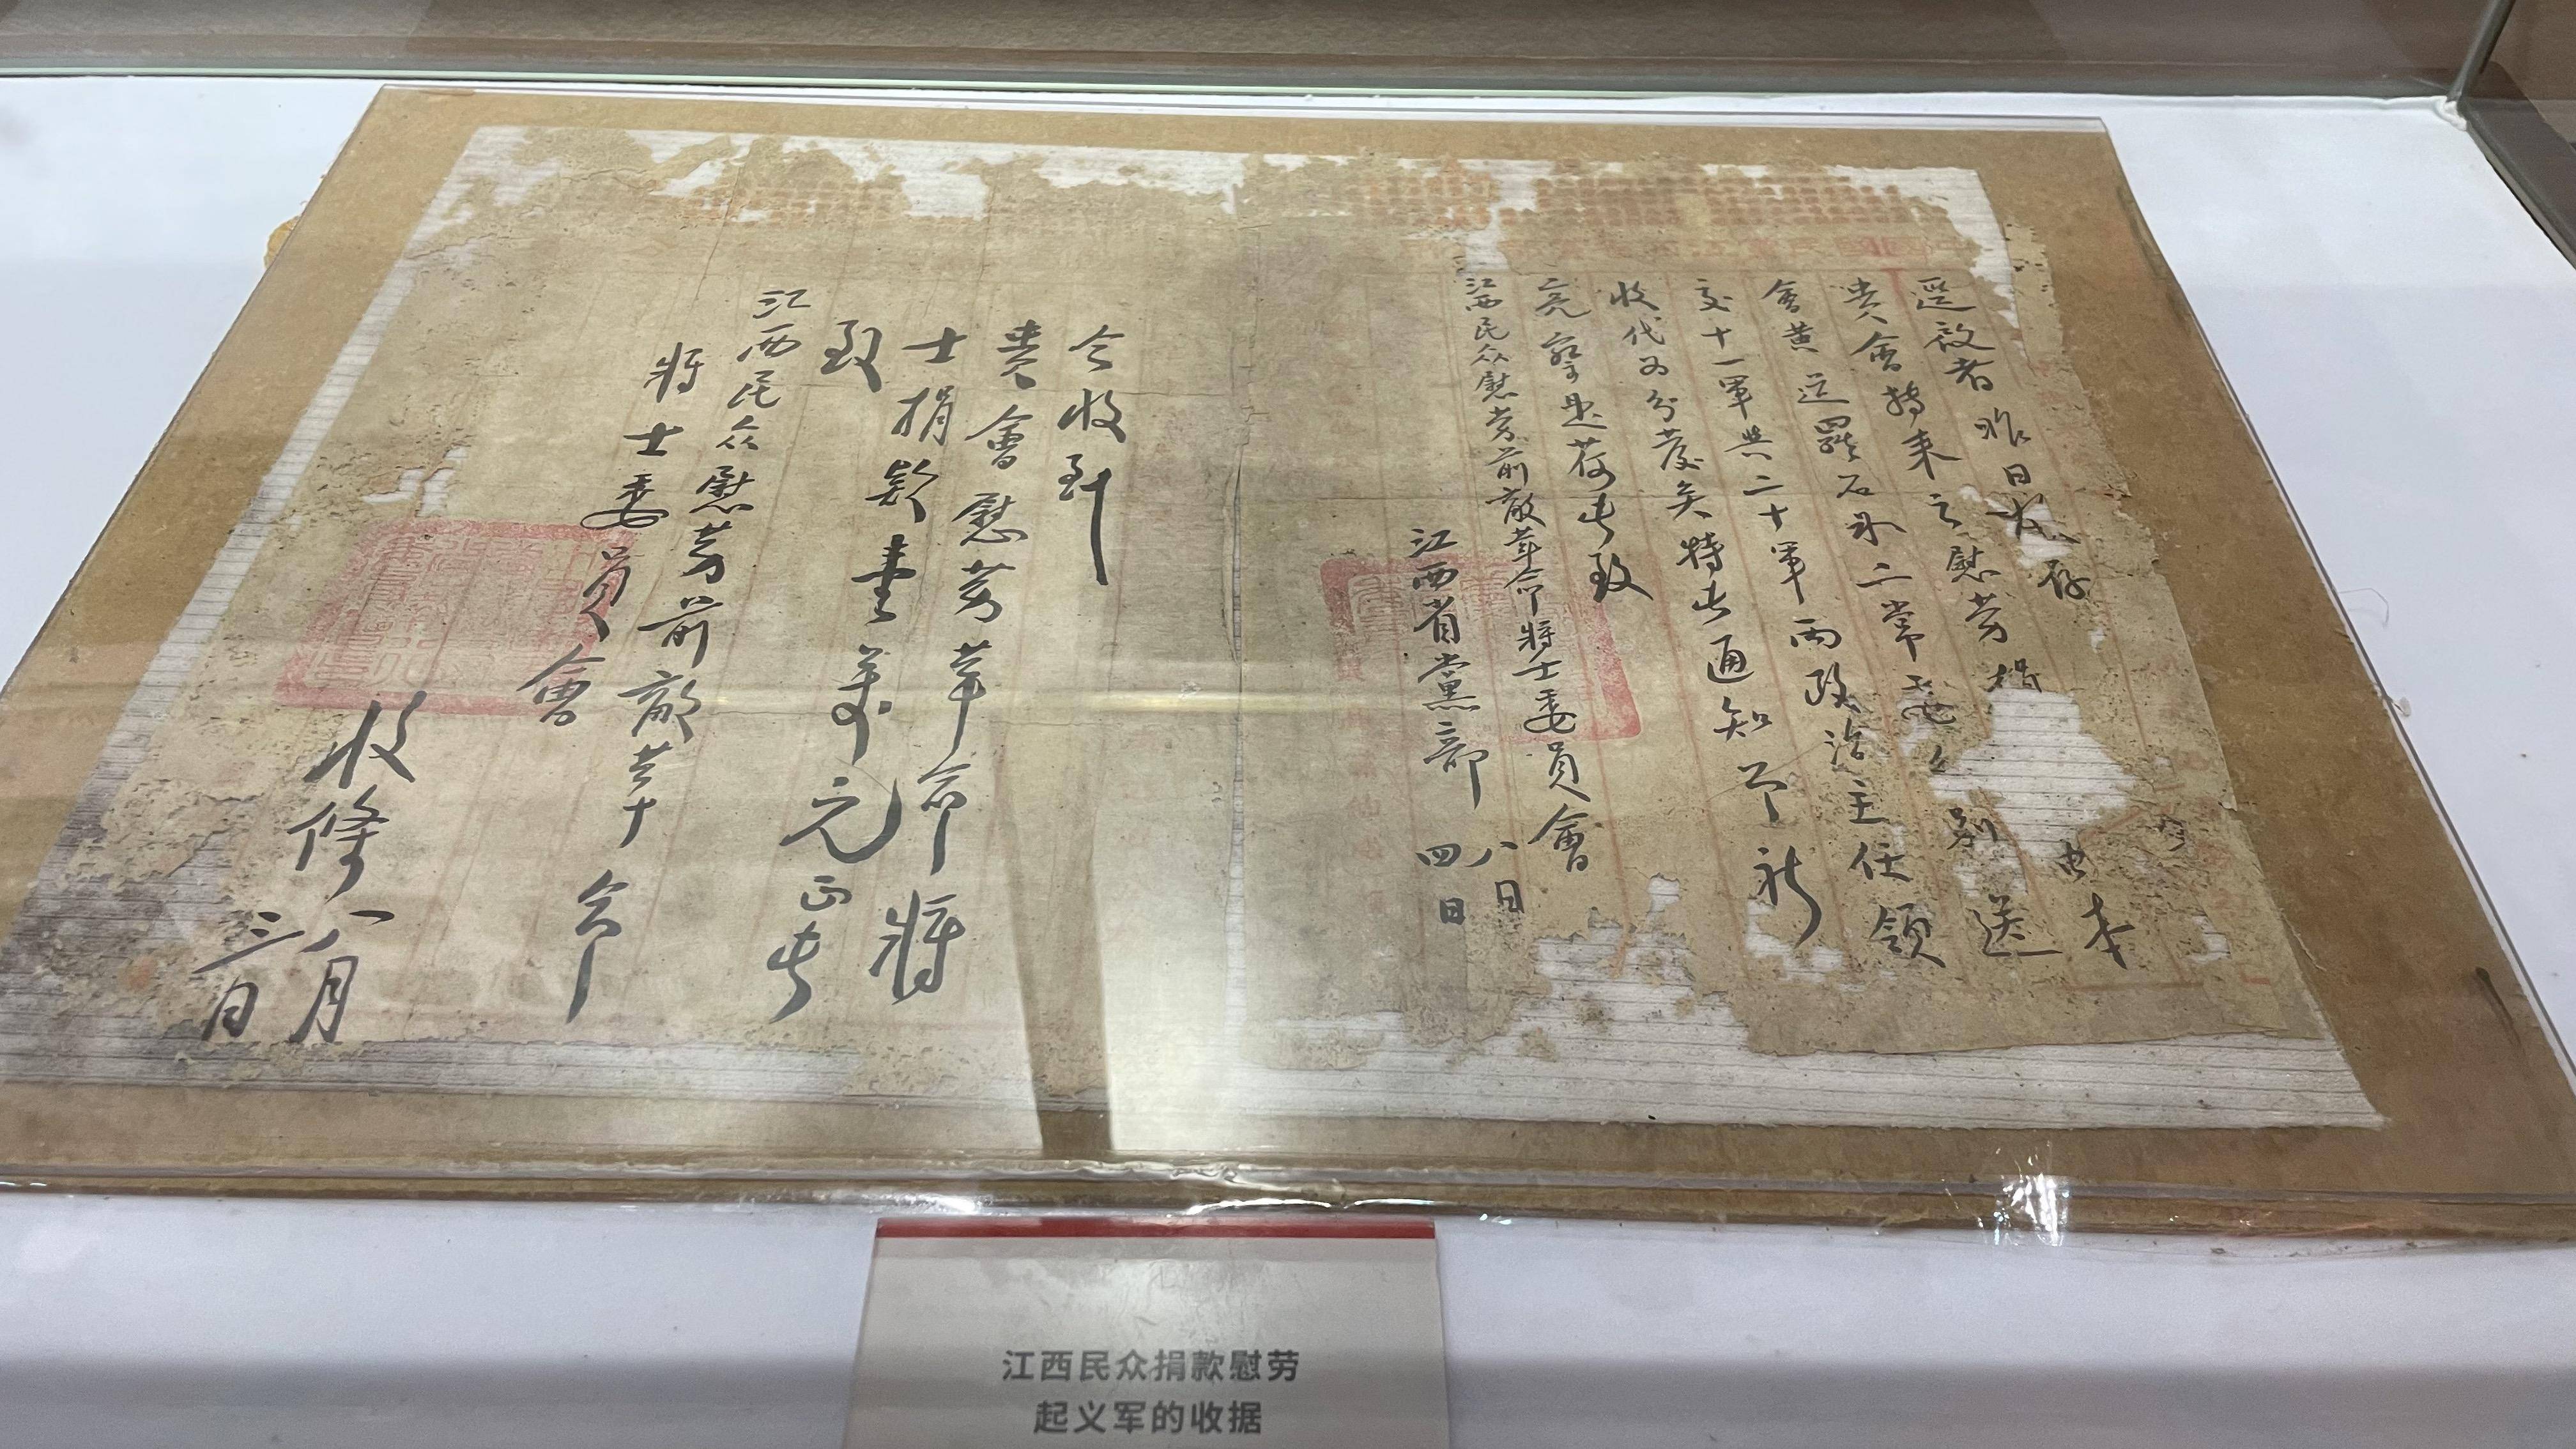 逕啟者昨日
貴會特來之慰劳捐由本
會黄道羅石冰二常委分別送
交十一軍與二十軍兩政治主任領
收代为分发矣特此通知即祈
亮察是荷此致
江西民众慰劳前敵革命將士委員會
江西省黨部
八日
四日
今收到
貴會慰劳革命將
士捐款壹萬元正此
致
江西民众慰劳前敵革命
將士委員會
收條
八月
三日
江西民众捐款慰劳
起义军的收据